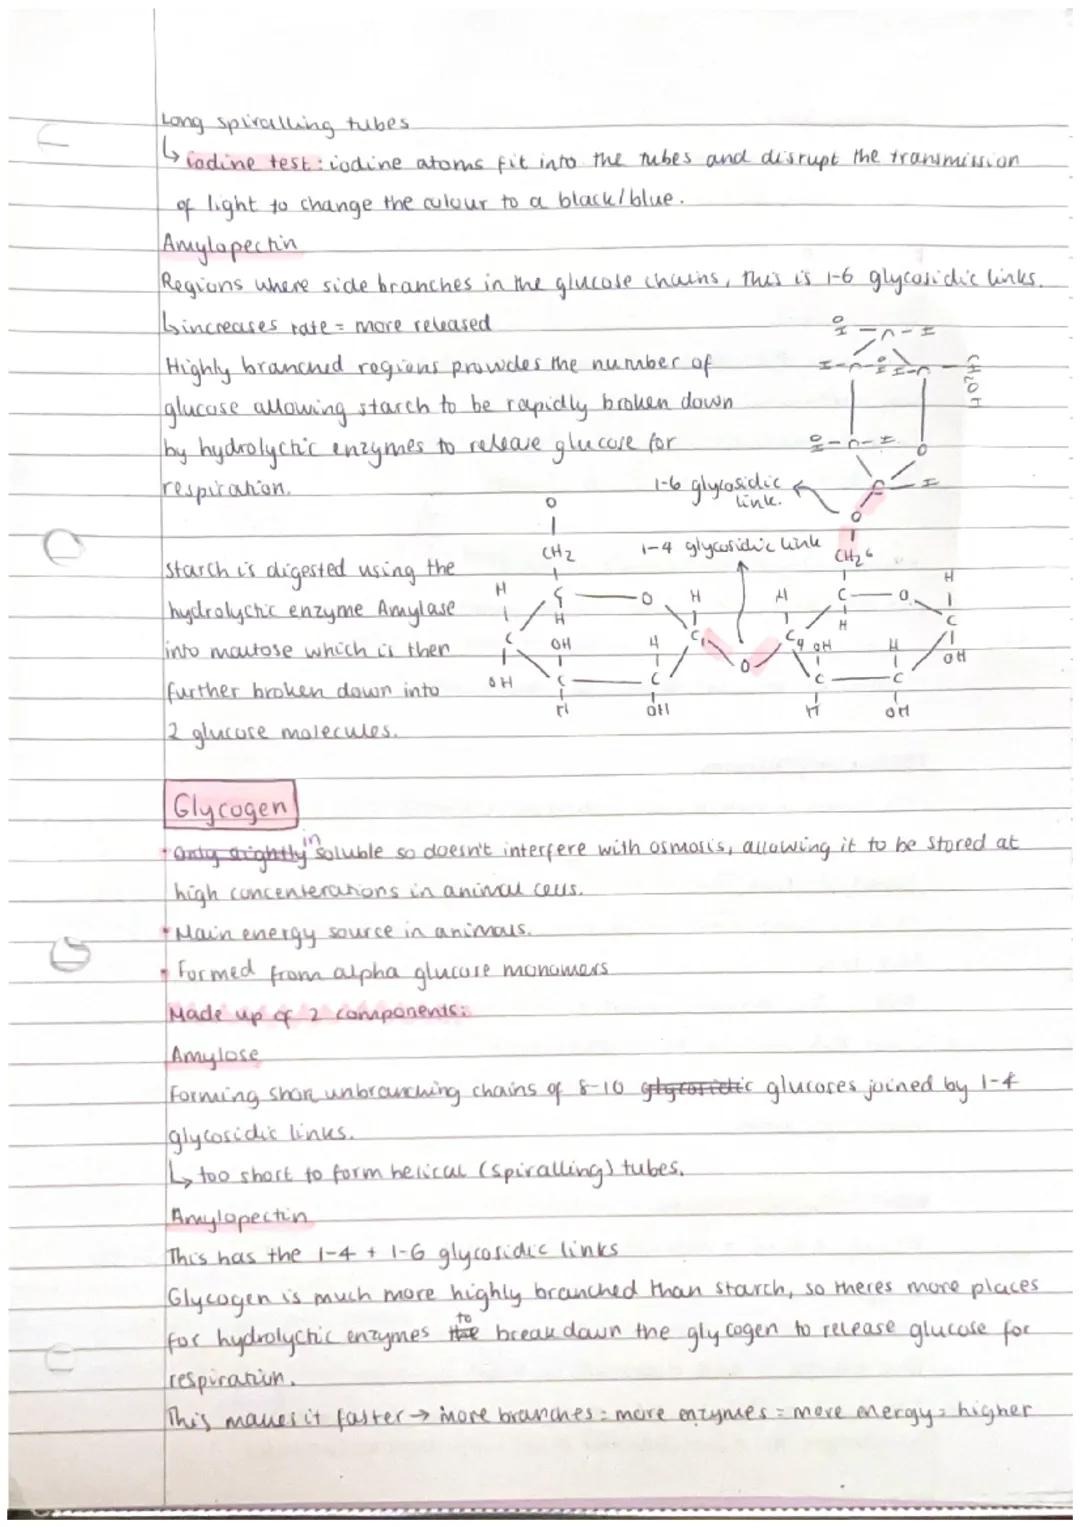 Long spiralling tubes
↳ iodine test: iodine atoms fit into the tubes and disrupt the transmission
of light to change the colour to a black/blue.
Amylopectin
Regions where side branches in the glucose chains, this is 1-6 glycosidic links.
↳ increases rate = more released
Highly branched regions provides the number of
glucose allowing starch to be rapidly broken down
by hydrolychic enzymes to release glucose for
respiration.
1-6 glycosidic
link.
1-4 glycosidic link
Starch is digested using the
hydrolychic enzyme Amylase
into maltose which is then
further broken down into
2 glucose molecules.
O
CH2
H
C
O
H
C1
C
H
OH
H
OH
C
C
H
OH
O
CH2 6
H
C
O
H
C4
H
OH
H
C
OH
C
C
H
OH
CH2OH
Glycogen
• Only slightly insoluble so doesn't interfere with osmosis, allowing it to be stored at
high concenterations in animal cells.
• Main energy source in animals.
• Formed from alpha glucose monomers
Made up of 2 components:
Amylose
Forming short unbranching chains of 8-10 glycosidic glucoses joined by 1-4
glycosidic links.
↳ too short to form helical (spiralling) tubes.
Amylopectin
This has the 1-4 + 1-6 glycosidic links
Glycogen is much more highly branched than starch, so theres more places
for hydrolychic enzymes to break down the glycogen to release glucose for
respiration.
This makes it faster → more branches = more enzymes = more energy = higher